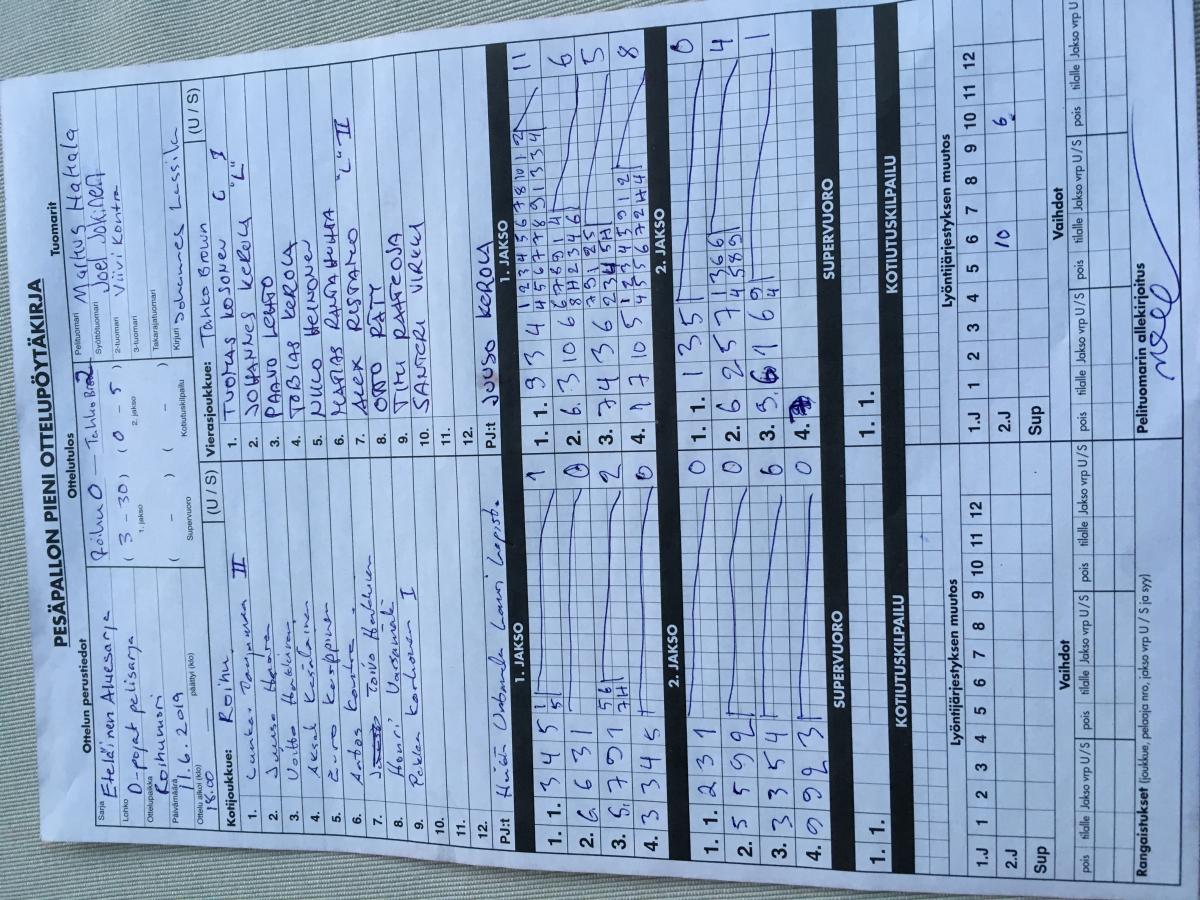 PESÄPALLON PIENI OTTELUPÖYTÄKIRJA
Ottelun perustiedot
Ottelutulos
Tuomarit
Sarja Eteläinen Aluesarja
Lohko D-pojat pelisarja
Ottelupaikka Roihuvuori
Päivämäärä 11.6.2019
Ottelu alkoi (klo) 18.00
päättyi (klo)
Roihu 0 – Tahko Br 2
( 3 – 30 ) ( 0 – 5 )
1. jakso 2. jakso
( – ) ( – )
Supervuoro Kotiutuskilpailu
Pelituomari Markus Hatiala
Syöttötuomari Joel Jokinen
2-tuomari Viivi Kontra
3-tuomari
Takarajatuomari
Kirjuri Johannes Lassila
Kotijoukkue: Roihu (U / S)
1. II
2. Juuso
3.
4.
5. Eero
6.
7. Toivo
8. Henri
9. Pekka Korhonen I
10.
11.
12.
PJ:t Lauri
Vierasjoukkue: Tahko Brown (U / S)
1. TUOMAS KOSONEN C I
2. JOHANNES KEROLA "L"
3. PAAVO LEHTO
4. TOBIAS KEROLA
5. NIKO HEINONEN
6. MATIAS RAUTAHUHTA
7. ALEK RUSTANO "L" II
8. OTTO RÄTY
9. TIMI RAATEOJA
10. SANTERI VIRKKI
11.
12.
PJ:t JUUSO KEROLA
1. JAKSO
1. 1. 3 4 5 1 5 1
2. 6 6 3 1 0
3. 5 7 9 1 5 6 7 H 2
4. 3 3 4 5 0
2. JAKSO
1. 1. 2 3 1 0
2. 5 5 9 9 2 0
3. 3 3 5 4 0
4. 9 9 2 3 0
SUPERVUORO
1. 1.
KOTIUTUSKILPAILU
1. JAKSO
1. 1. 9 3 4 1 2 3 4 5 6 7 8 10 1 2 11
4 5 6 7 7 8 9 1 3 3 4
2. 6. 3 10 6 6 7 8 9 1 4 6
8 H 2 3 4 6
3. 7 4 3 6 7 9 1 2 5 5
2 3 4 5 H
4. 1 7 10 5 1 2 3 4 5 9 1 2 8
4 5 5 6 7 2 H 4
2. JAKSO
1. 1. 1 3 5 0
2. 6 2 5 7 1 3 6 6 4
4 5 8 9
3. 3 1 6 9 1
4
4.
SUPERVUORO
1. 1.
KOTIUTUSKILPAILU
Lyöntijärjestyksen muutos
1.J 1 2 3 4 5 6 7 8 9 10 11 12
2.J
Sup
Vaihdot
pois tilalle Jakso vrp U/S pois tilalle Jakso vrp U/S pois tilalle Jakso vrp U/S
Lyöntijärjestyksen muutos
1.J 1 2 3 4 5 6 7 8 9 10 11 12
2.J 10 6
Sup
Vaihdot
pois tilalle Jakso vrp U/S pois tilalle Jakso vrp U/S pois tilalle Jakso vrp U/S
Rangaistukset (joukkue, pelaaja nro, jakso vrp U / S ja syy)
Pelituomarin allekirjoitus